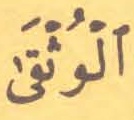 ٱلْوُثْقَىٰ